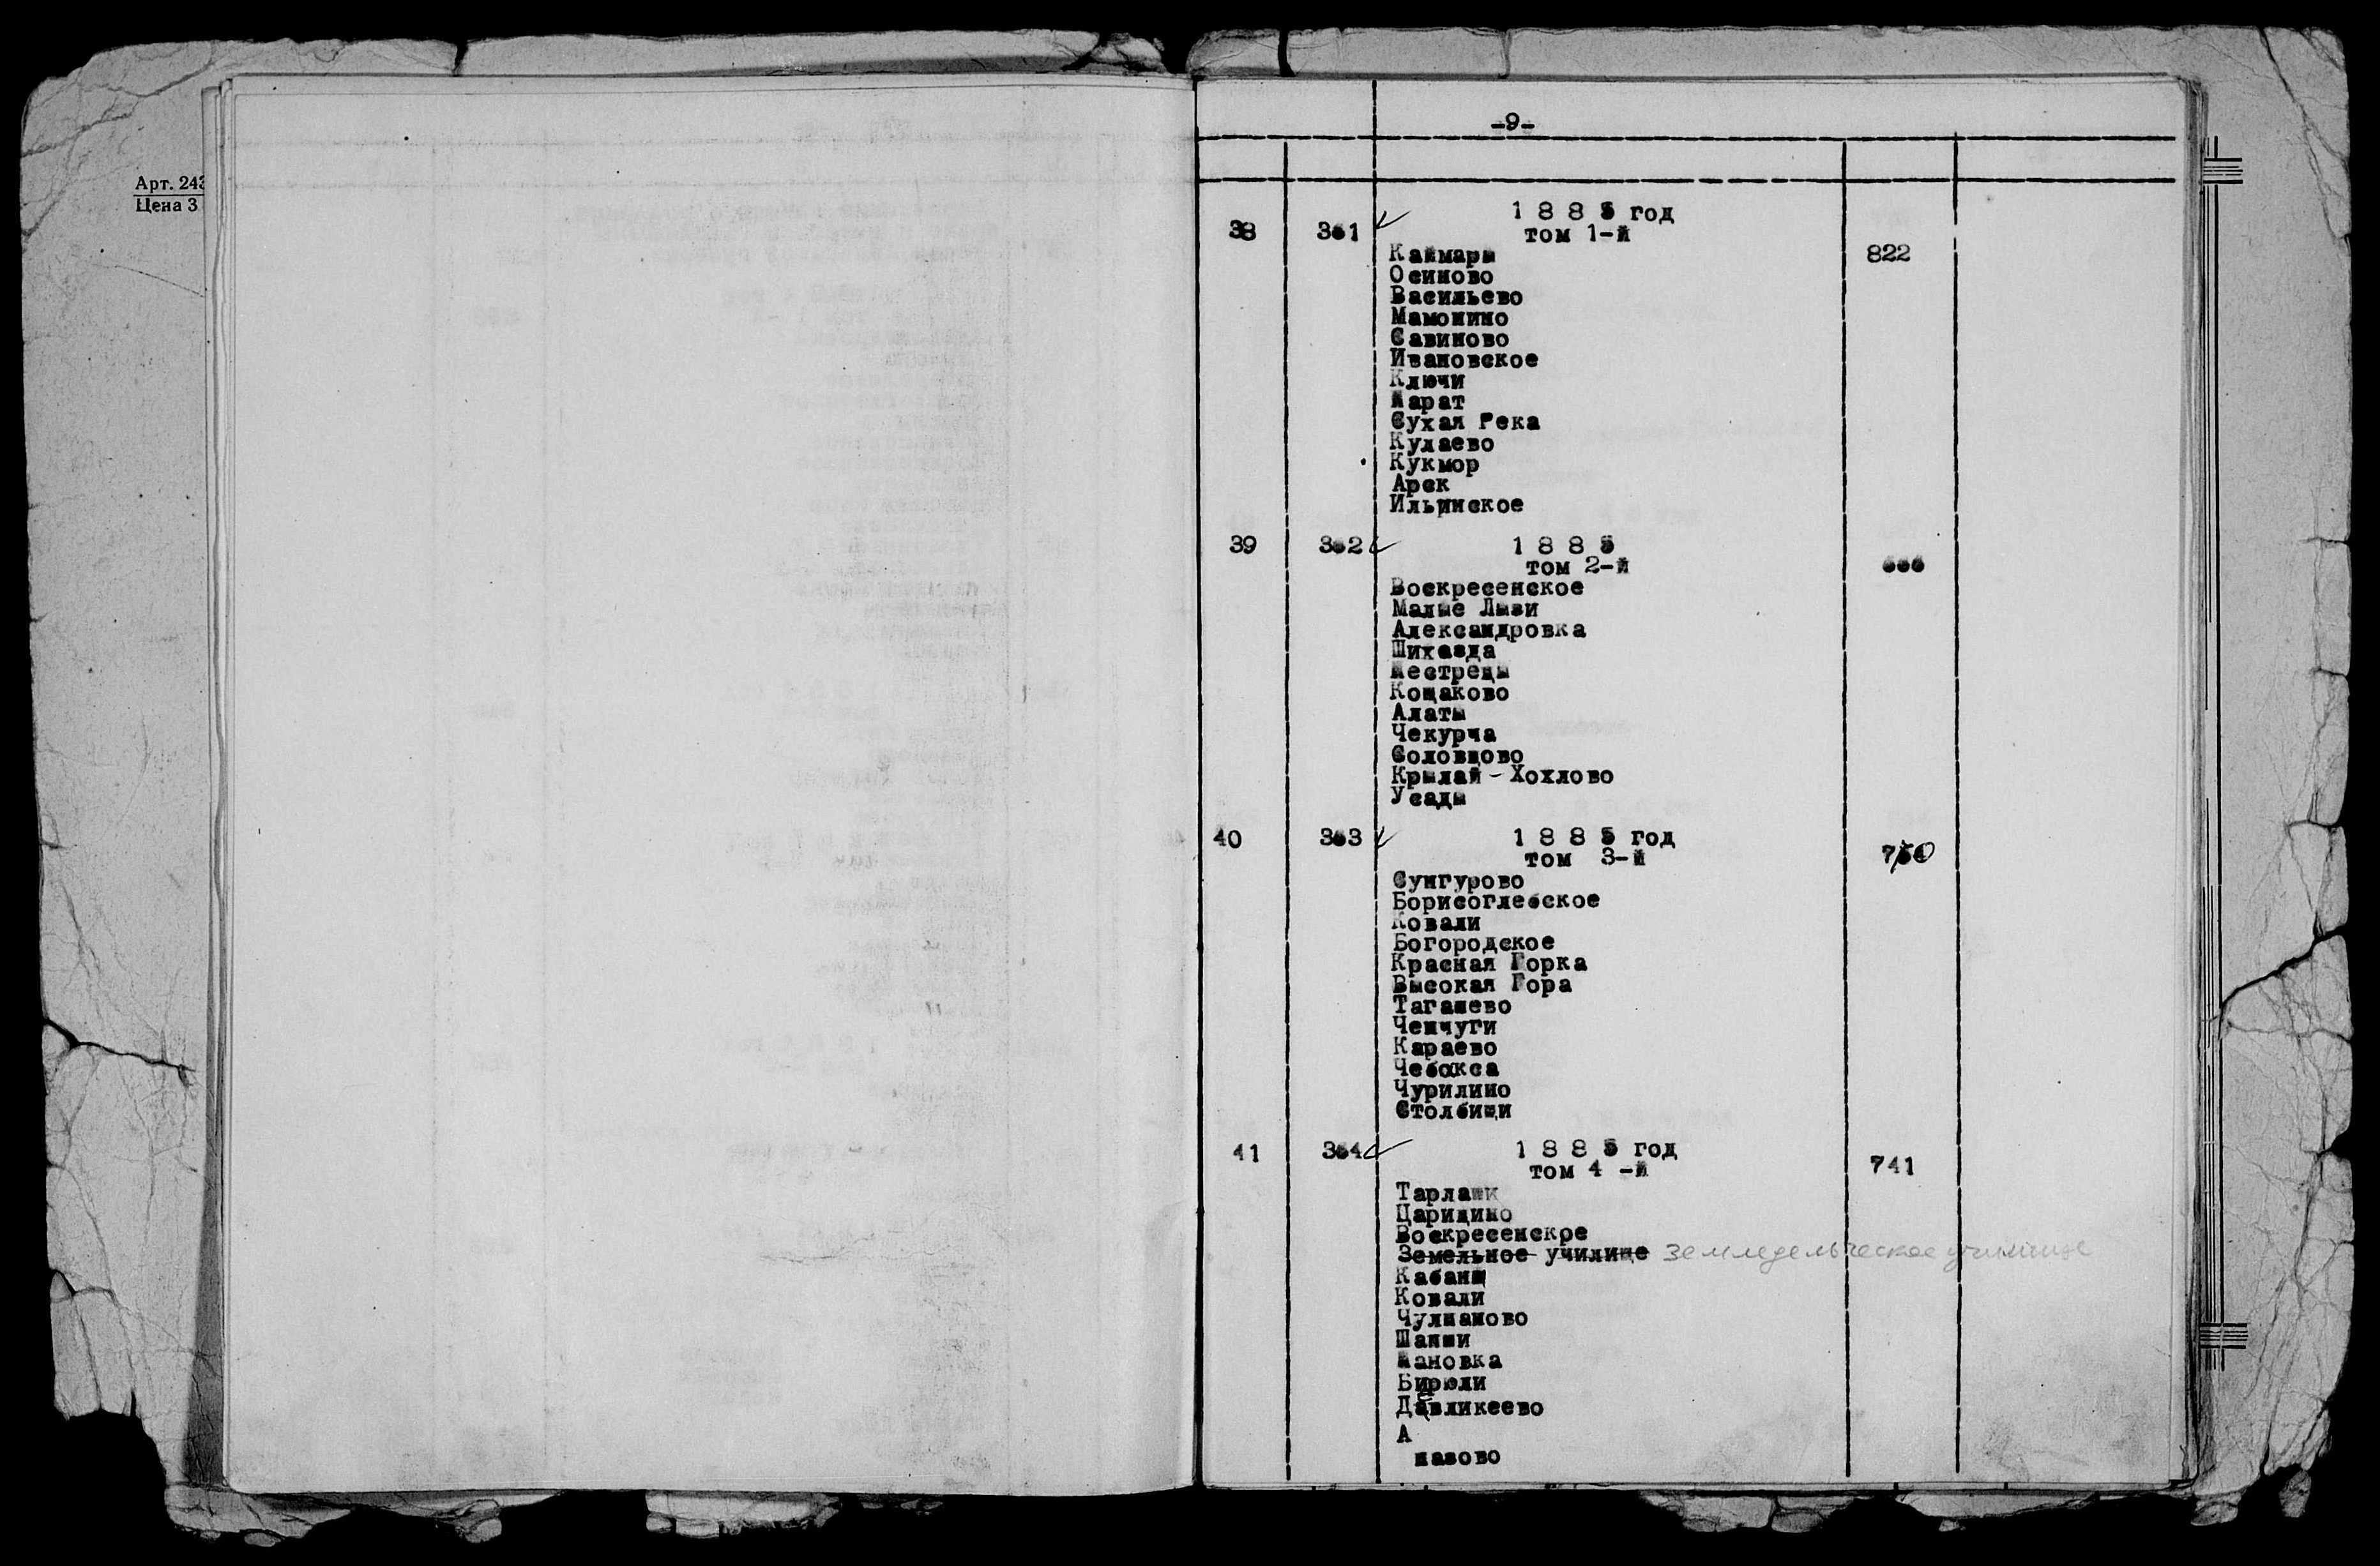 Арт. 243
Цена 3
-9-
38 361 1885 год
том 1-й
Каймары 822
Осиново
Васильево
Мамонино
Савиново
Ивановское
Ключи
Карат
Сухая Река
Кулаево
Кукмор
Арск
Ильинское
39 362 1885
том 2-й 666
Воскресенское
Малые Лызи
Александровка
Шихазда
Пестрецы
Кощаково
Алаты
Чекурча
Соловцово
Крылай-Хохлово
Усады
40 363 1885 год
том 3-й 750
Сунгурово
Борисоглебское
Ковали
Богородское
Красная Горка
Высокая Гора
Тагашево
Чепчуги
Караево
Чебакса
Чурилино
Столбищи
41 364 1885 год
том 4-й 741
Тарлаши
Царицино
Воскресенское
Земельное училище Земледельческое училище
Кабаны
Ковали
Чулпаново
Шапши
Пановка
Бирюли
Девликеево
А
пазово